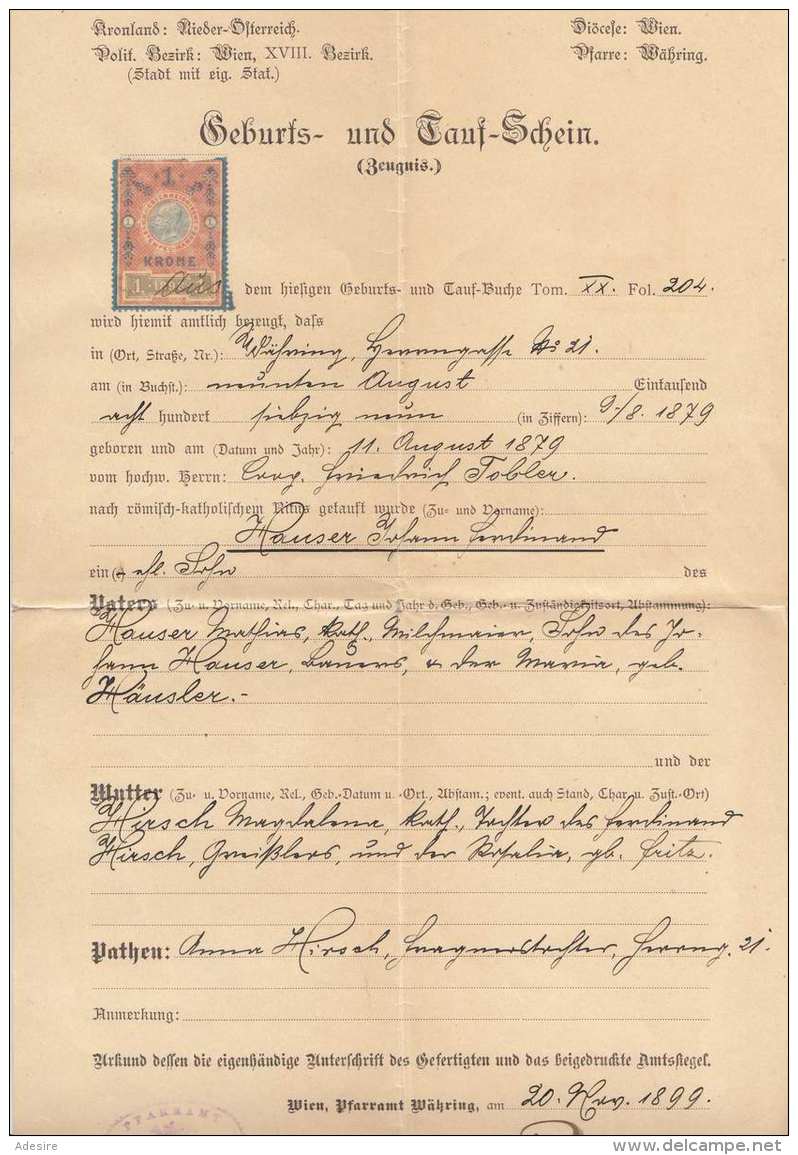 Kronland: Nieder-Österreich.
Diöcese: Wien.
Polit. Bezirk: Wien, XVIII. Bezirk.
Pfarre: Währing.
(Stadt mit eig. Stat.)
Geburts- und Tauf-Schein.
(Zeugnis.)
1
1 1
KRONE
1
Aus dem hiesigen Geburts- und Tauf-Buche Tom. XX. Fol. 204.
wird hiemit amtlich bezeugt, dass
in (Ort, Straße, Nr.): Währing, Herrngasse No 21.
am (in Buchst.): neunten August Eintausend
acht hundert siebzig neun (in Ziffern): 9/8. 1879
geboren und am (Datum und Jahr): 11. August 1879
vom hochw. Herrn: Coop. Friedrich Tobler.
nach römisch-katholischem Ritus getauft wurde (Zu- und Vorname):
Hauser Johann Ferdinand
ein ehl. Sohn des
Vaters (Zu- u. Vorname, Rel., Char., Tag und Jahr d. Geb., Geb.- u. Zuständigkeitsort, Abstammung):
Hauser Mathias, kath., Milchmaier, Sohn des Jo-
hann Hauser, Bauers, & der Maria, geb.
Häusler.-
und der
Mutter (Zu- u. Vorname, Rel., Geb.-Datum u. -Ort., Abstam.; event. auch Stand, Char. u. Zust.-Ort)
Hirsch Magdalena, kath., Tochter des Ferdinand
Hirsch, Greißlers, und der Rosalia, gb. Fritz.
Pathen: Anna Hirsch, Fragnerstochter, Herrng. 21
Anmerkung:
Urkund dessen die eigenhändige Unterschrift des Gefertigten und das beigedruckte Amtssiegel.
Wien, Pfarramt Währing, am 20. Nov. 1899.
PFARRAMT
Adesire
delcampe.net